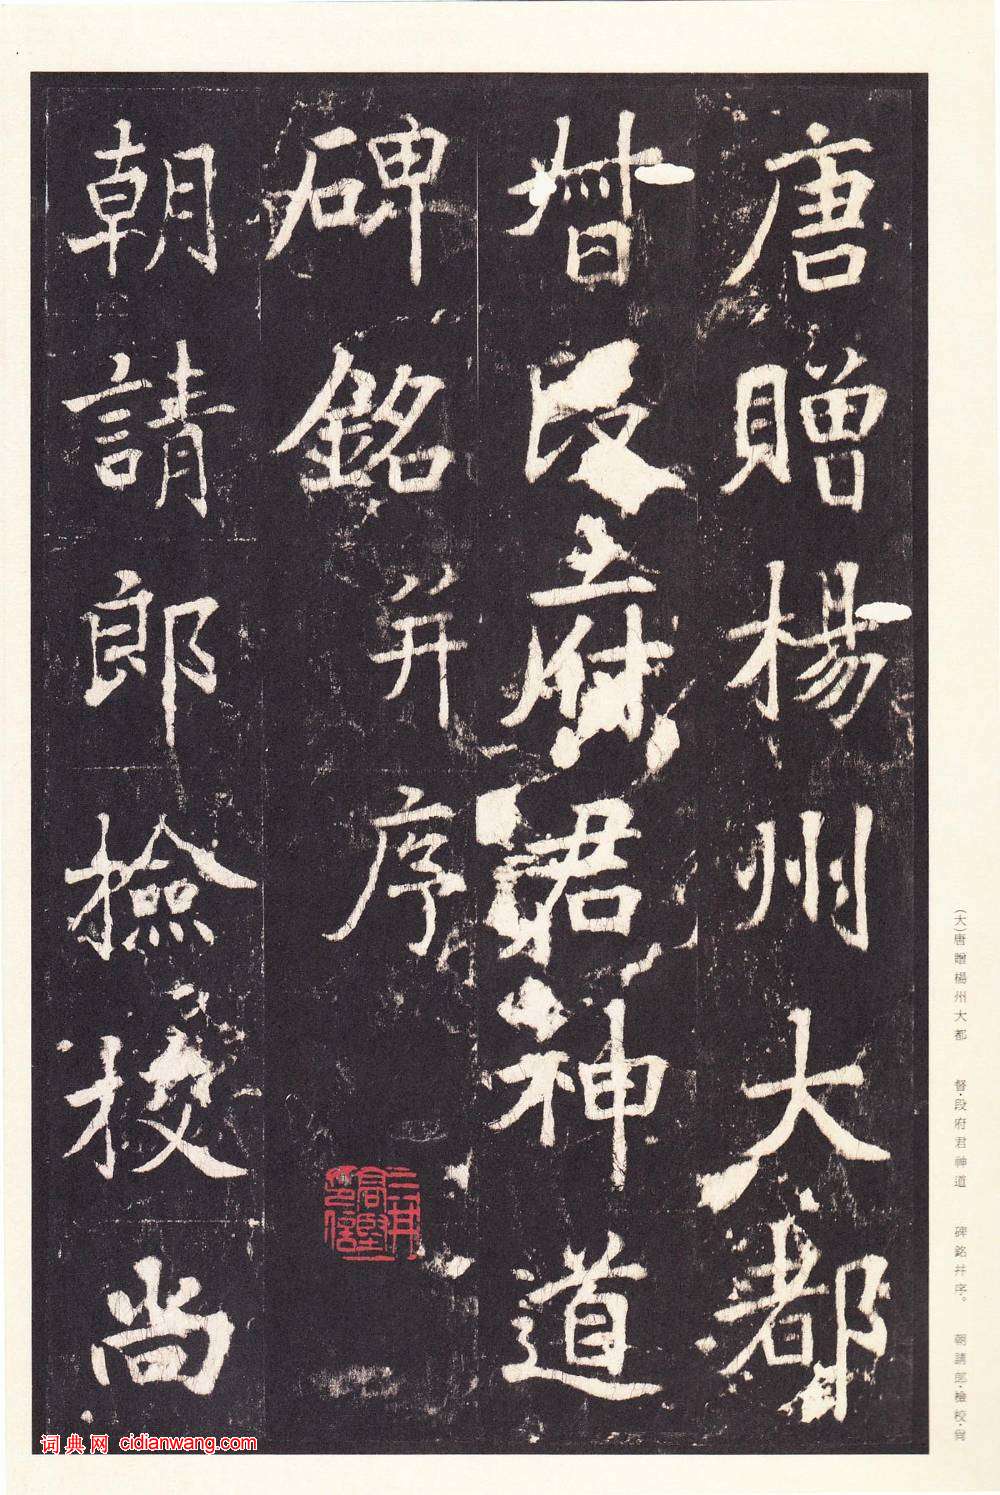 唐贈楊州大都
督段府君神道
碑銘并序
朝請郎檢校尚
(大)唐贈楊州大都 督·段府君神道 碑銘并序。 朝請郎·檢校·尚
词典网 cidianwang.com